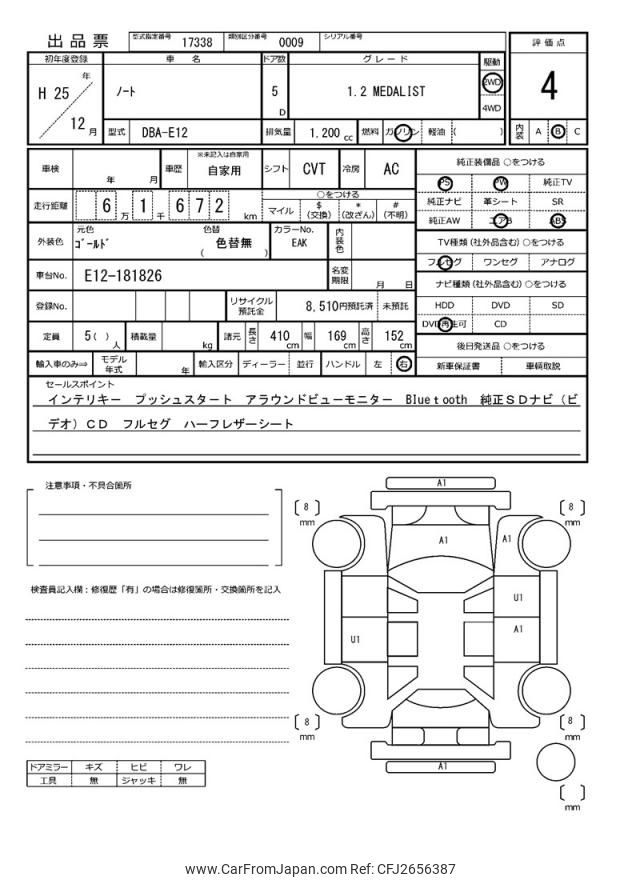 出品票 型式指定番号 17338 類別区分番号 0009 シリアル番号
評価点
4
初年度登録 車名 ドア数 グレード 駆動
H 25 年 ノート 5 D 1.2 MEDALIST 2WD 4WD
12 月 型式 DBA-E12 排気量 1.200 cc 燃料 ガソリン 軽油 ( ) 内装 A B C
車検 年 月 車歴 ※未記入は自家用 自家用 シフト CVT 冷房 AC
走行距離 6 万 1 千 6 7 2 km
○をつける
マイル $(交換) *(改ざん) #(不明)
外装色 元色 ゴールド 色替 ( 色替無 ) カラーNo. EAK 内装色
車台No. E12-181826 名変期限 月 日
登録No. リサイクル預託金 8,510円預託済 未預託
定員 5( ) 人 積載量 kg 諸元 長さ 410 cm 幅 169 cm 高さ 152 cm
輸入車のみ⇒ モデル年式 年 輸入区分 ディーラー 並行 ハンドル 左 右
純正装備品 ○をつける
PS PW 純正TV
純正ナビ 革シート SR
純正AW エアB ABS
TV種類(社外品含む)○をつける
フルセグ ワンセグ アナログ
ナビ種類(社外品含む)○をつける
HDD DVD SD
DVD再生可 CD
後日発送品 ○をつける
新車保証書 車輌取説
セールスポイント
インテリキー プッシュスタート アラウンドビューモニター Bluetooth 純正SDナビ(ビ
デオ)CD フルセグ ハーフレザーシート
注意事項・不具合箇所
検査員記入欄:修復歴「有」の場合は修復箇所・交換箇所を記入
ドアミラー キズ ヒビ ワレ
工具 無 ジャッキ 無
A1
[ 8 ] mm [ 8 ] mm
A1 A1
U1
U1 A1
[ 8 ] mm [ 8 ] mm
A1
[ ] mm
www.CarFromJapan.com Ref: CFJ2656387